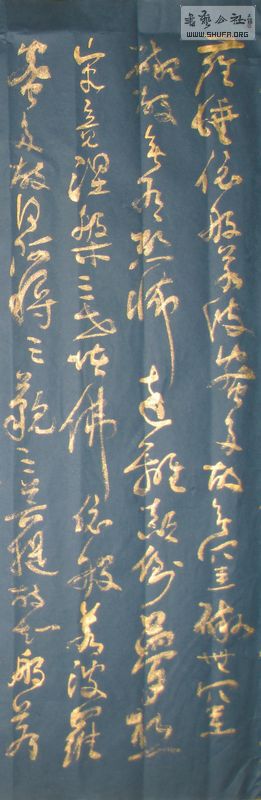 薩埵依般若波蜜多故無罣礙無罣
礙故無有恐怖遠離顛倒夢想
究竟涅槃三世諸佛依般若波羅
蜜多故得阿耨三藐三菩提故知般若
书艺公社
WWW.SHUFA.ORG